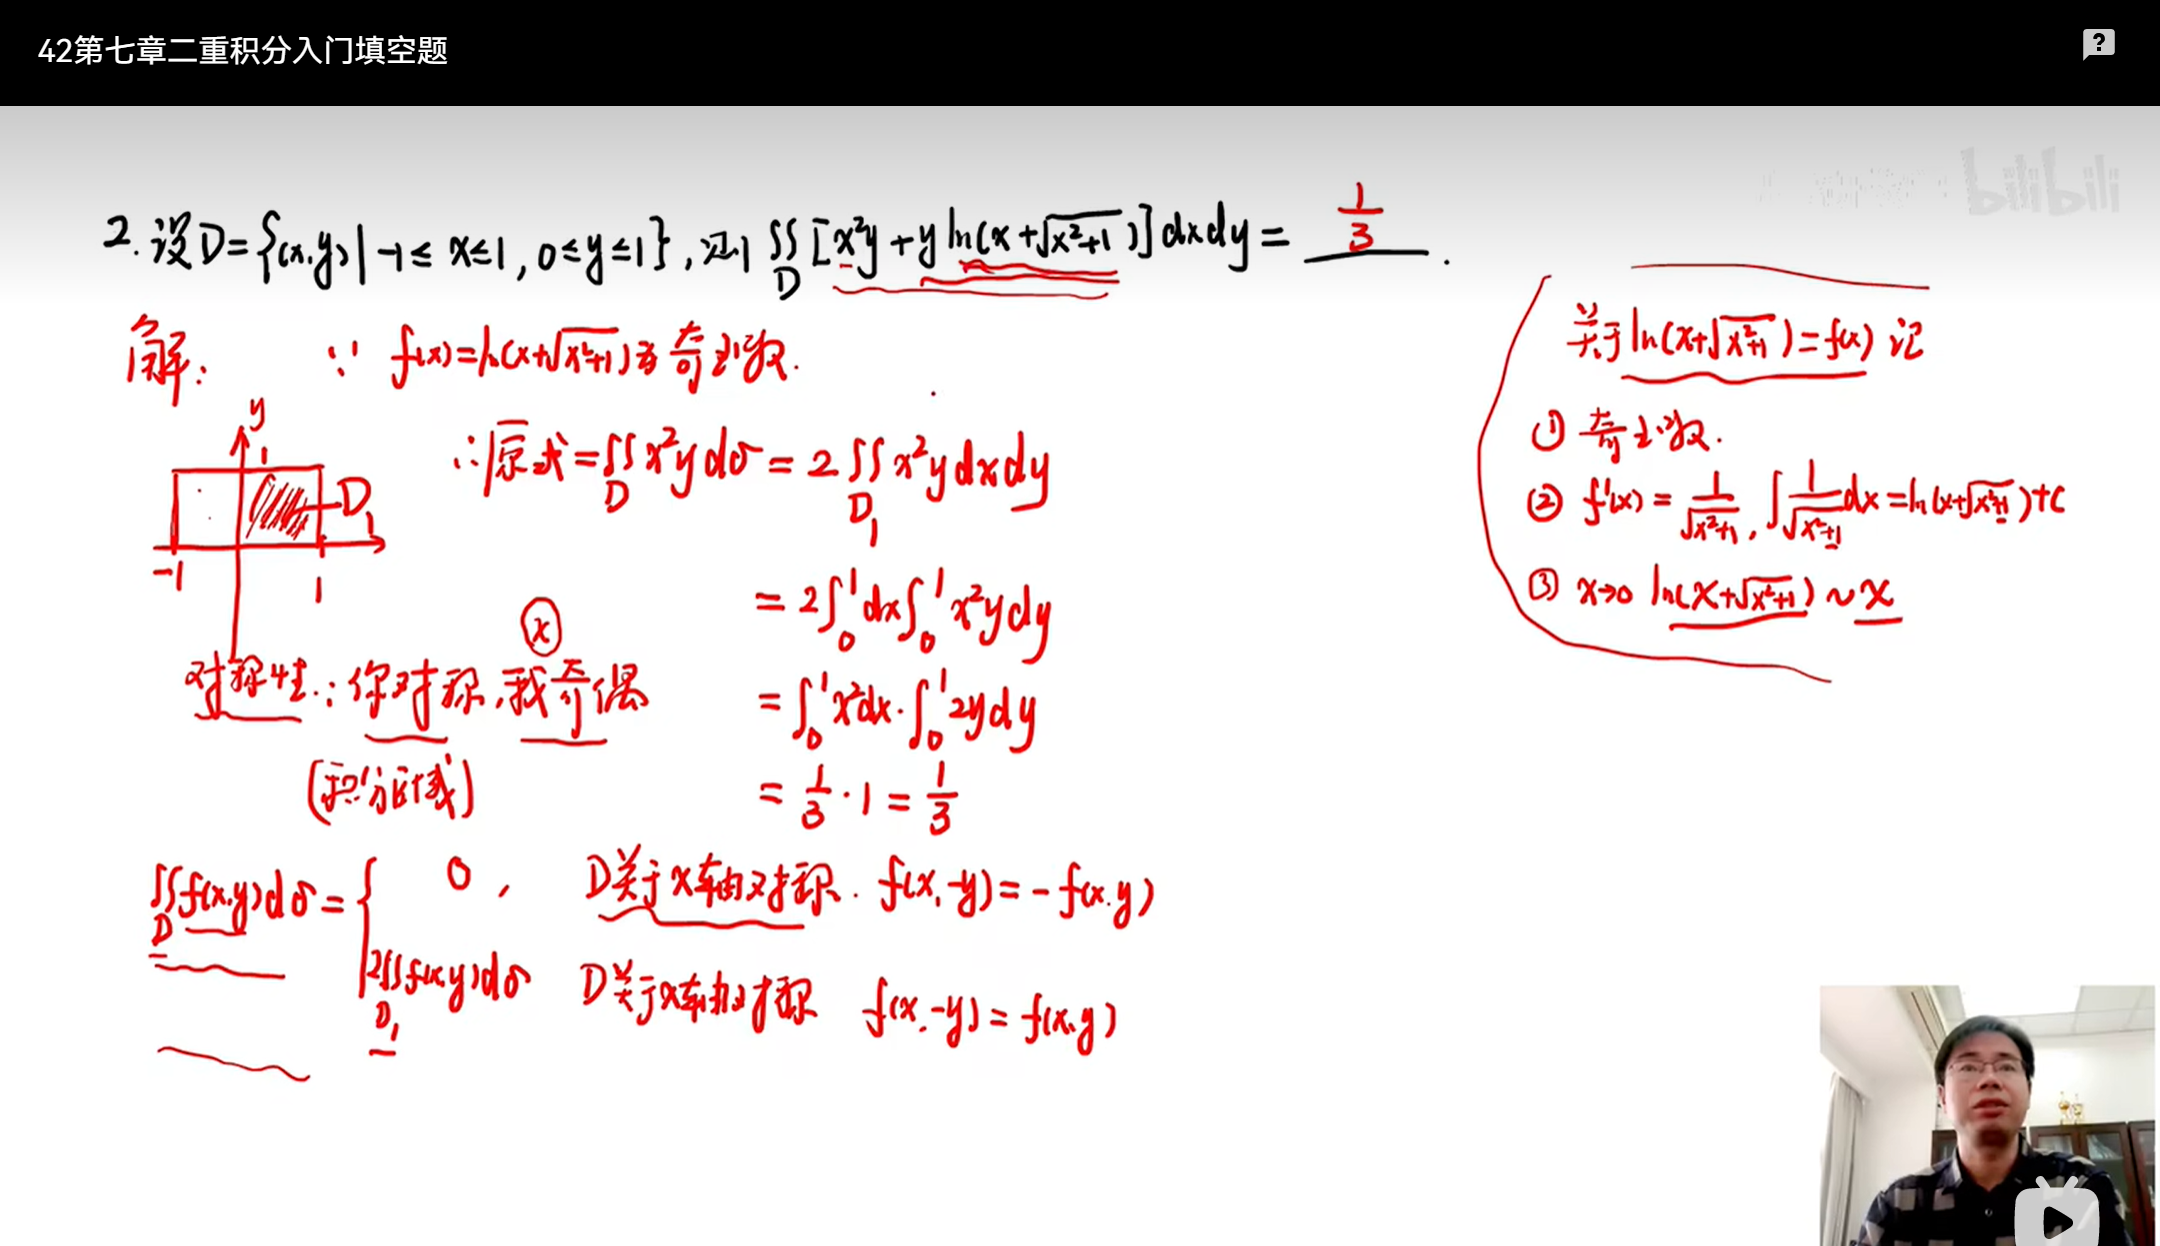 42第七章二重积分入门填空题
bilibili
2. 设D={(x,y)|-1≤ x≤1, 0≤y≤1}, 则 ∬_D [x²y+y ln(x+√(x²+1))]dxdy= 1/3 .
解: ∵ f(x)=ln(x+√(x²+1))为奇函数.
∴原式=∬_D x²ydσ=2∬_{D₁} x²ydxdy
y
1
D₁
-1
1
=2∫₀¹dx∫₀¹x²ydy
=∫₀¹x²dx·∫₀¹2ydy
=1/3·1=1/3
x
对称性: 你对称,我奇偶
(积分区域)
∬_D f(x,y)dσ={ 0, D关于x轴对称. f(x,-y)=-f(x,y)
2∬_{D₁} f(x,y)dσ D关于x轴对称 f(x,-y)=f(x,y)
关于ln(x+√(x²+1))=f(x) 记
① 奇函数.
② f'(x)=1/√(x²+1), ∫1/√(x²+1)dx=ln(x+√(x²+1))+C
③ x→0 ln(x+√(x²+1))~x